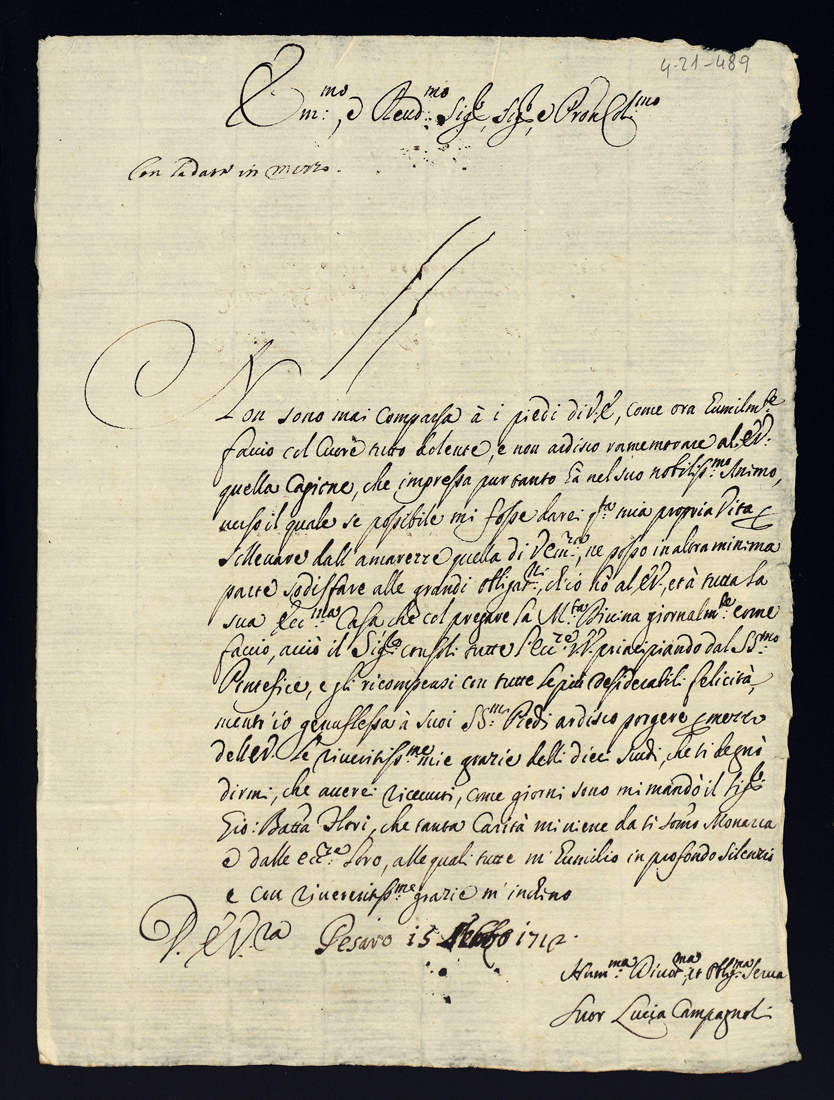 4-21-489
Em:mo, e Reud:mo Sig:re, Sig:re, e Pron Col:mo
Con la dara in mezzo.
Non sono mai comparsa à i piedi di V.E., come ora humilm:te
faccio col Cuore tutto dolente, e non ardisco ramemorare al E.V.
quella Cagione, che impressa pur tanto hà nel suo nobiliss:mo Animo,
verso il quale se possibile mi fosse darei q:sta mia propria Vita p
sollevare dall'amarezze quella di V.Em:za, ne posso in altra minima
parte sodisfare alle grandi obligat:ni, ch'io hò al E.V., et à tutta la
sua Ecc:ma Casa che col pregare la M:tà Divina giornalm:te come
faccio, acciò il Sig:re consoli tutte l'Ecc:ze VV principiando dal SS:mo
Pontefice, e gli ricompensi con tutte le più desiderabili felicità,
mentr'io genuflessa à suoi SS:mi Piedi ardisco porgere p mezzo
dell'E.V. le riveritiss:me mie grazie delli dieci scudi, che si degnò
dirmi, che averei ricevuti, come giorni sono mi mandò il Sig:re
Gio: Batta Flori, che tanta Carità mi viene da si Somo Monarca
e dalle ecc:ze loro, alle quali tutte m'humilio in profondo silenzio
e con riverentiss:me grazie m'inchino
D. E V:ra Pesaro 15 1712.
Hum:ma Divot:ma, et Obblig:ma Serva
Suor Lucia Campagnoli